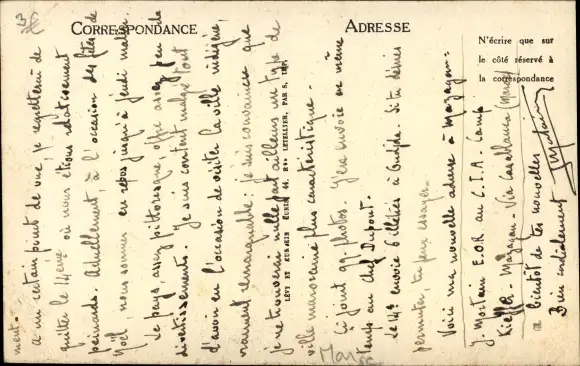 CORRESPONDANCE
ADRESSE
N'écrire que sur
le côté réservé à
la correspondance
LÉVY ET NEURDEIN RÉUNIS 44, RUE LETELLIER, PARIS, IMP.
ment.
A un certain point de vue, je regretterai de
quitter le 14ème où nous étions relativement
peinards. Actuellement, à l'occasion des fêtes de
Noël, nous sommes en repos jusqu'à jeudi matin.
Le pays, assez pittoresque, offre assez peu de
divertissements. Je suis content malgré tout
d'avoir eu l'occasion de visiter la ville indigène,
vraiment remarquable : je suis convaincu que
je ne trouverai nulle part ailleurs un type de
ville marocaine plus caractéristique.
Ci joint qq. photos. J'en envoie en même
temps au Chef Dupont.
Le 14e envoie 6 élèves à Si tu désires
permuter, tu peux essayer.
Voici ma nouvelle adresse à Mazagan :
J. Mortain E.O.R. au C.I.A. Camp
Kieffer - Mazagan - Via Casablanca (Maroc)
à bientôt de tes nouvelles
Bien cordialement
JMortain
Maroc